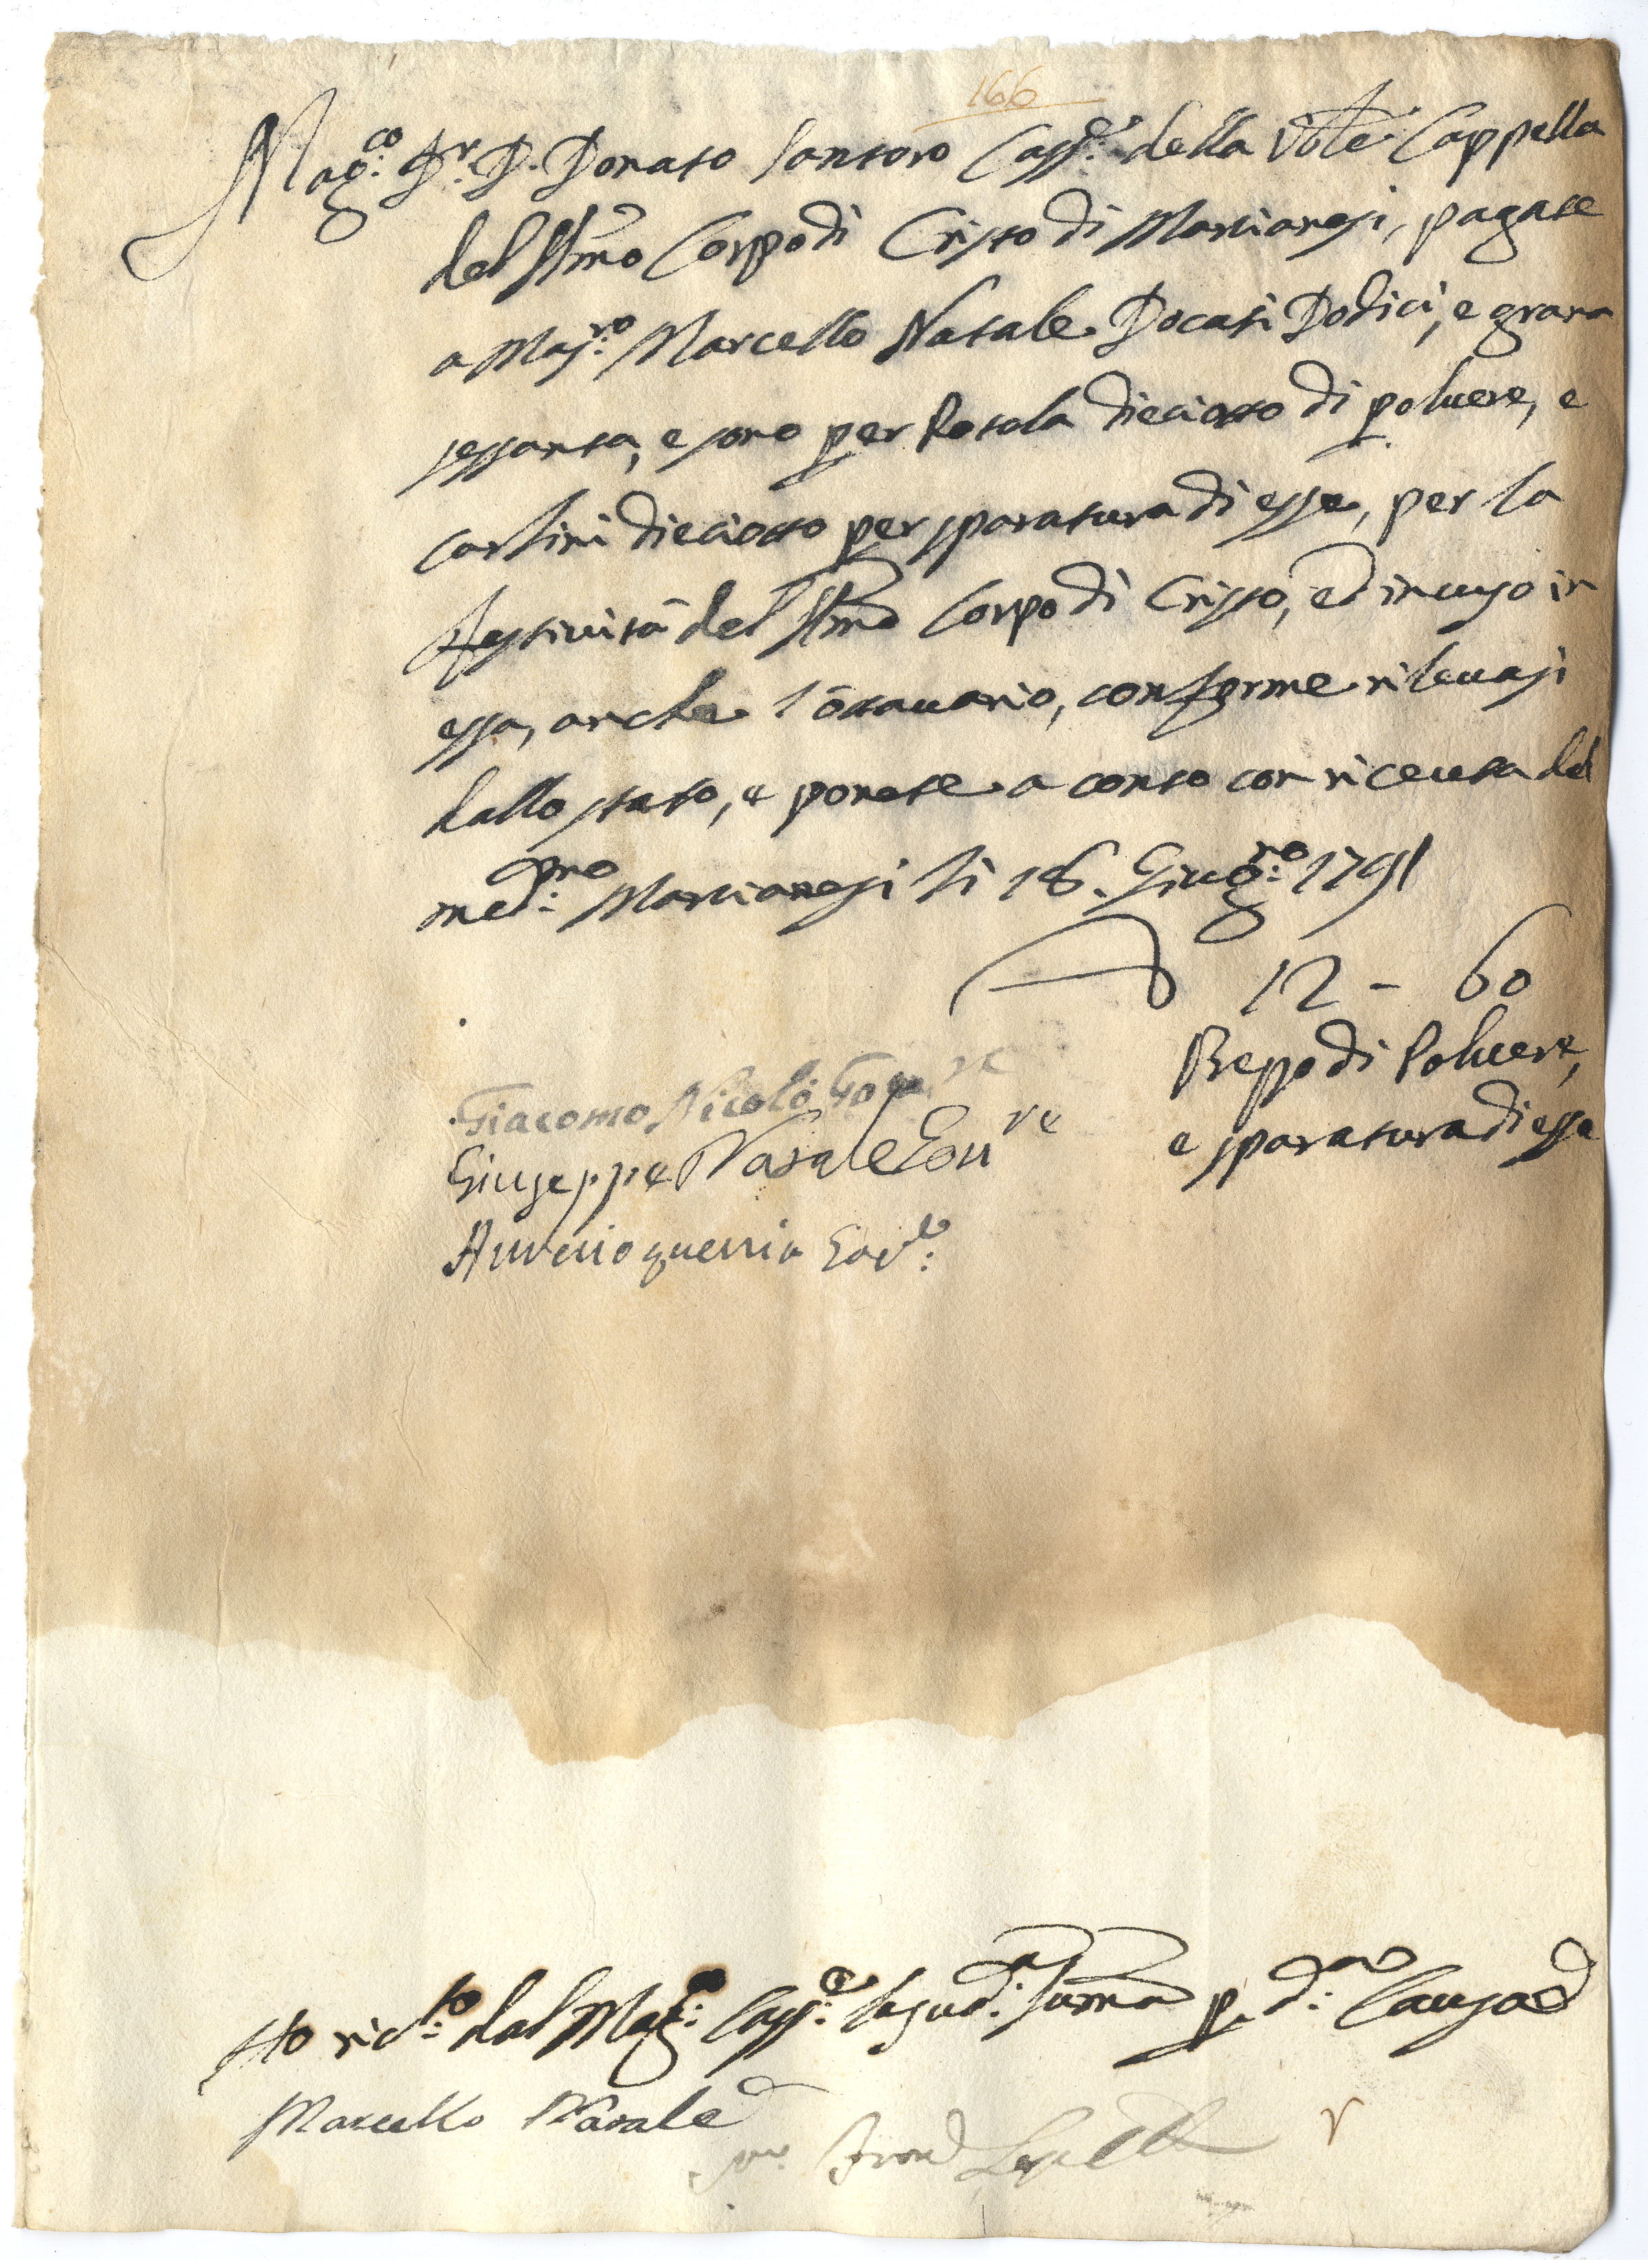 166
Mag:co Dr: D. Donato Santoro Cass:e della Ven:le Cappella
del SSmo Corpo di Cristo di Marcianesi, pagate
a Mas:ro Marcello Natale Docati Dodici, e grana
sessanta, e sono per Rotola dieciotto di polvere, e
carlini dieciotto per sparatura di esse, per la
festività del SSmo Corpo di Cristo, ed incuso in
essa, anche l'ottavario, conforme rilevasi
dallo stato, e ponete a conto con ricevuta del
med:mo Marcianesi li 18. Giug:no 1791
12 - 60
Beppo di Polvere,
e sparatura di esse
Giacomo Nicolò Gov re
Giuseppe Natale Gov re
Aurelio querria Gov:e
Ho ric:to dal Mag:co Cass:e la sud:a summa p d:a Causa
Marcello Natale